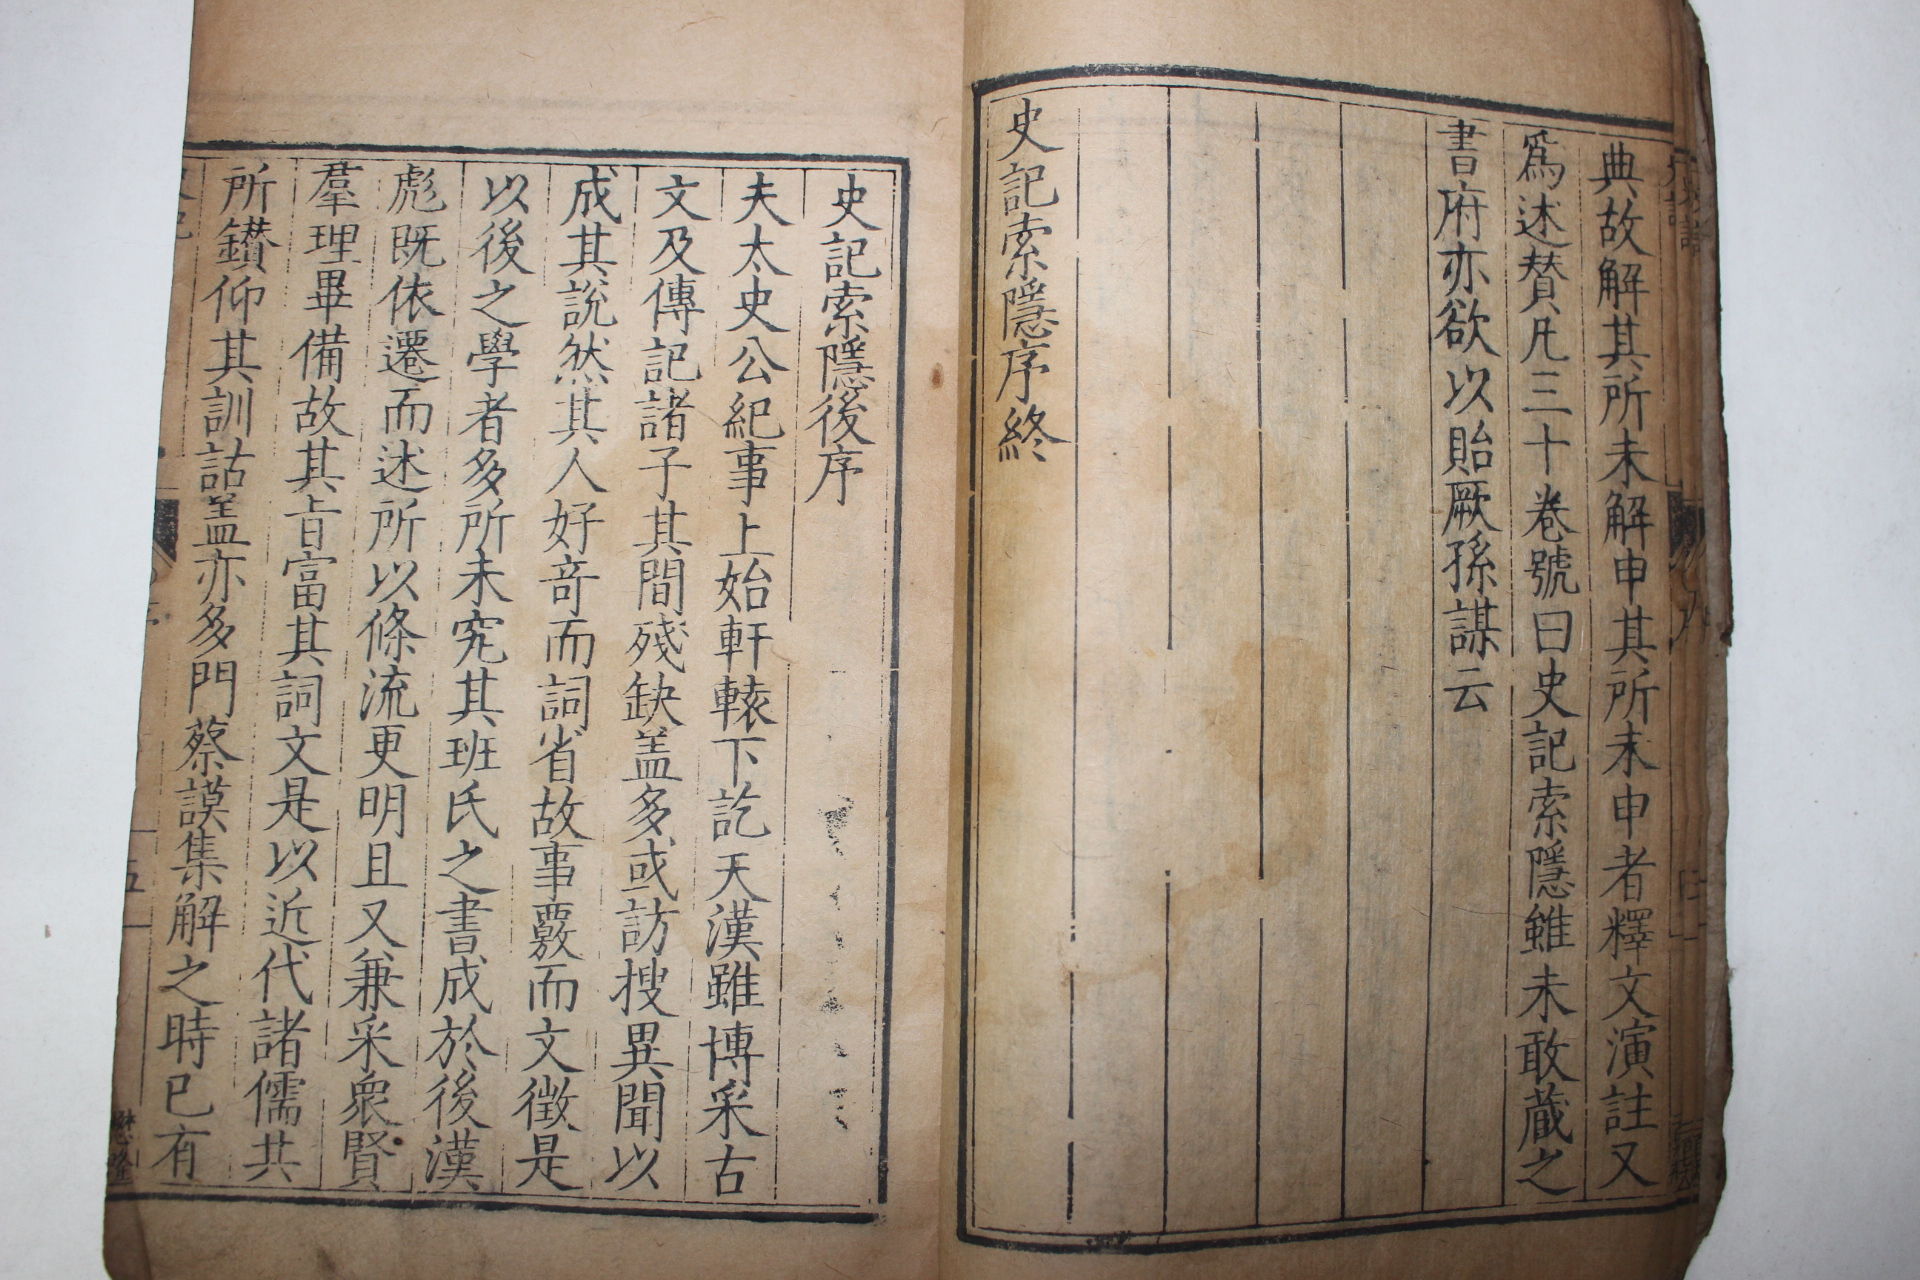 典故解其所未解申其所未申者釋文演註又
爲述賛凡三十卷號曰史記索隱雖未敢蔵之
書府亦欲以貽厥孫謀云
史記索隱序終
史記索隱後序
夫太史公紀事上始軒轅下訖天漢雖博采古
文及傳記諸子其間殘缺盖多或訪搜異聞以
成其説然其人好竒而詞省故事覈而文徴是
以後之學者多所未究其班氏之書成於後漢
彪既依遷而述所以條流更明且又兼采衆賢
羣理畢備故其旨富其詞文是以近代諸儒共
所鑚仰其訓詁盖亦多門蔡謨集解之時已有
五